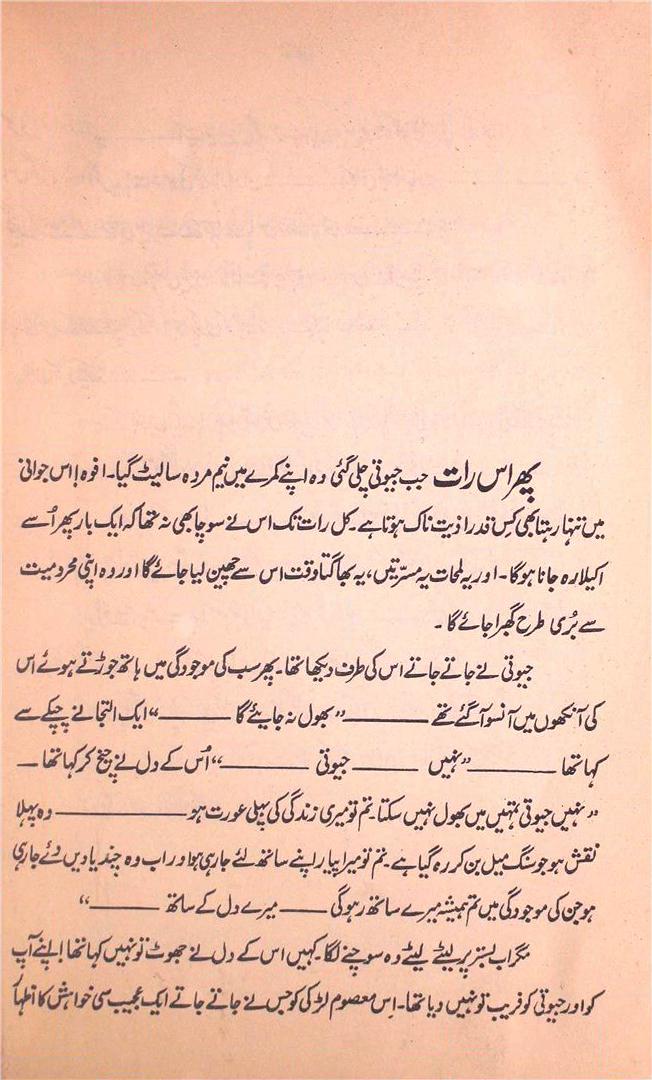 پھر اس رات جب جیوتی چلی گئی وہ اپنے کمرے میں نیم مردہ سا لیٹ گیا۔ افوہ! اس جوانی
میں تنہا رہنا بھی کس قدر اذیت ناک ہوتا ہے۔ کل رات تک اس نے سوچا بھی نہ تھا کہ ایک بار پھر اُسے
اکیلا رہ جانا ہوگا۔ اور یہ لمحات یہ مسرّتیں، یہ بھاگتا وقت اس سے چھین لیا جائے گا اور وہ اپنی محرومیت
سے بُری طرح گھبرا جائے گا۔
جیوتی نے جاتے جاتے اس کی طرف دیکھا تھا۔ پھر سب کی موجودگی میں ہاتھ جوڑتے ہوئے اس
کی آنکھوں میں آنسو آ گئے تھے ——— ”بھول نہ جایئے گا ———“ ایک التجا نے چپکے سے
کہا تھا ——— ”نہیں ——— جیوتی ———“ اُس کے دل نے چیخ کر کہا تھا —
”نہیں جیوتی تمہیں میں بھول نہیں سکتا۔ تم تو میری زندگی کی پہلی عورت ہو ——— وہ پہلا
نقش ہو جو سنگ میل بن کر رہ گیا ہے۔ تم تو میرا پیار اپنے ساتھ لئے جا رہی ہو اور اب وہ چند یادیں دئے جا رہی
ہو جن کی موجودگی میں تم ہمیشہ میرے ساتھ رہو گی —— میرے دل کے ساتھ ———“
مگر اب بستر پر لیٹے لیٹے وہ سوچنے لگا۔ کہیں اس کے دل نے جھوٹ تو نہیں کہا تھا! اپنے آپ
کو اور جیوتی کو فریب تو نہیں دیا تھا۔ اِس معصوم لڑکی کو جس نے جاتے جاتے ایک عجیب سی خواہش کا اظہار